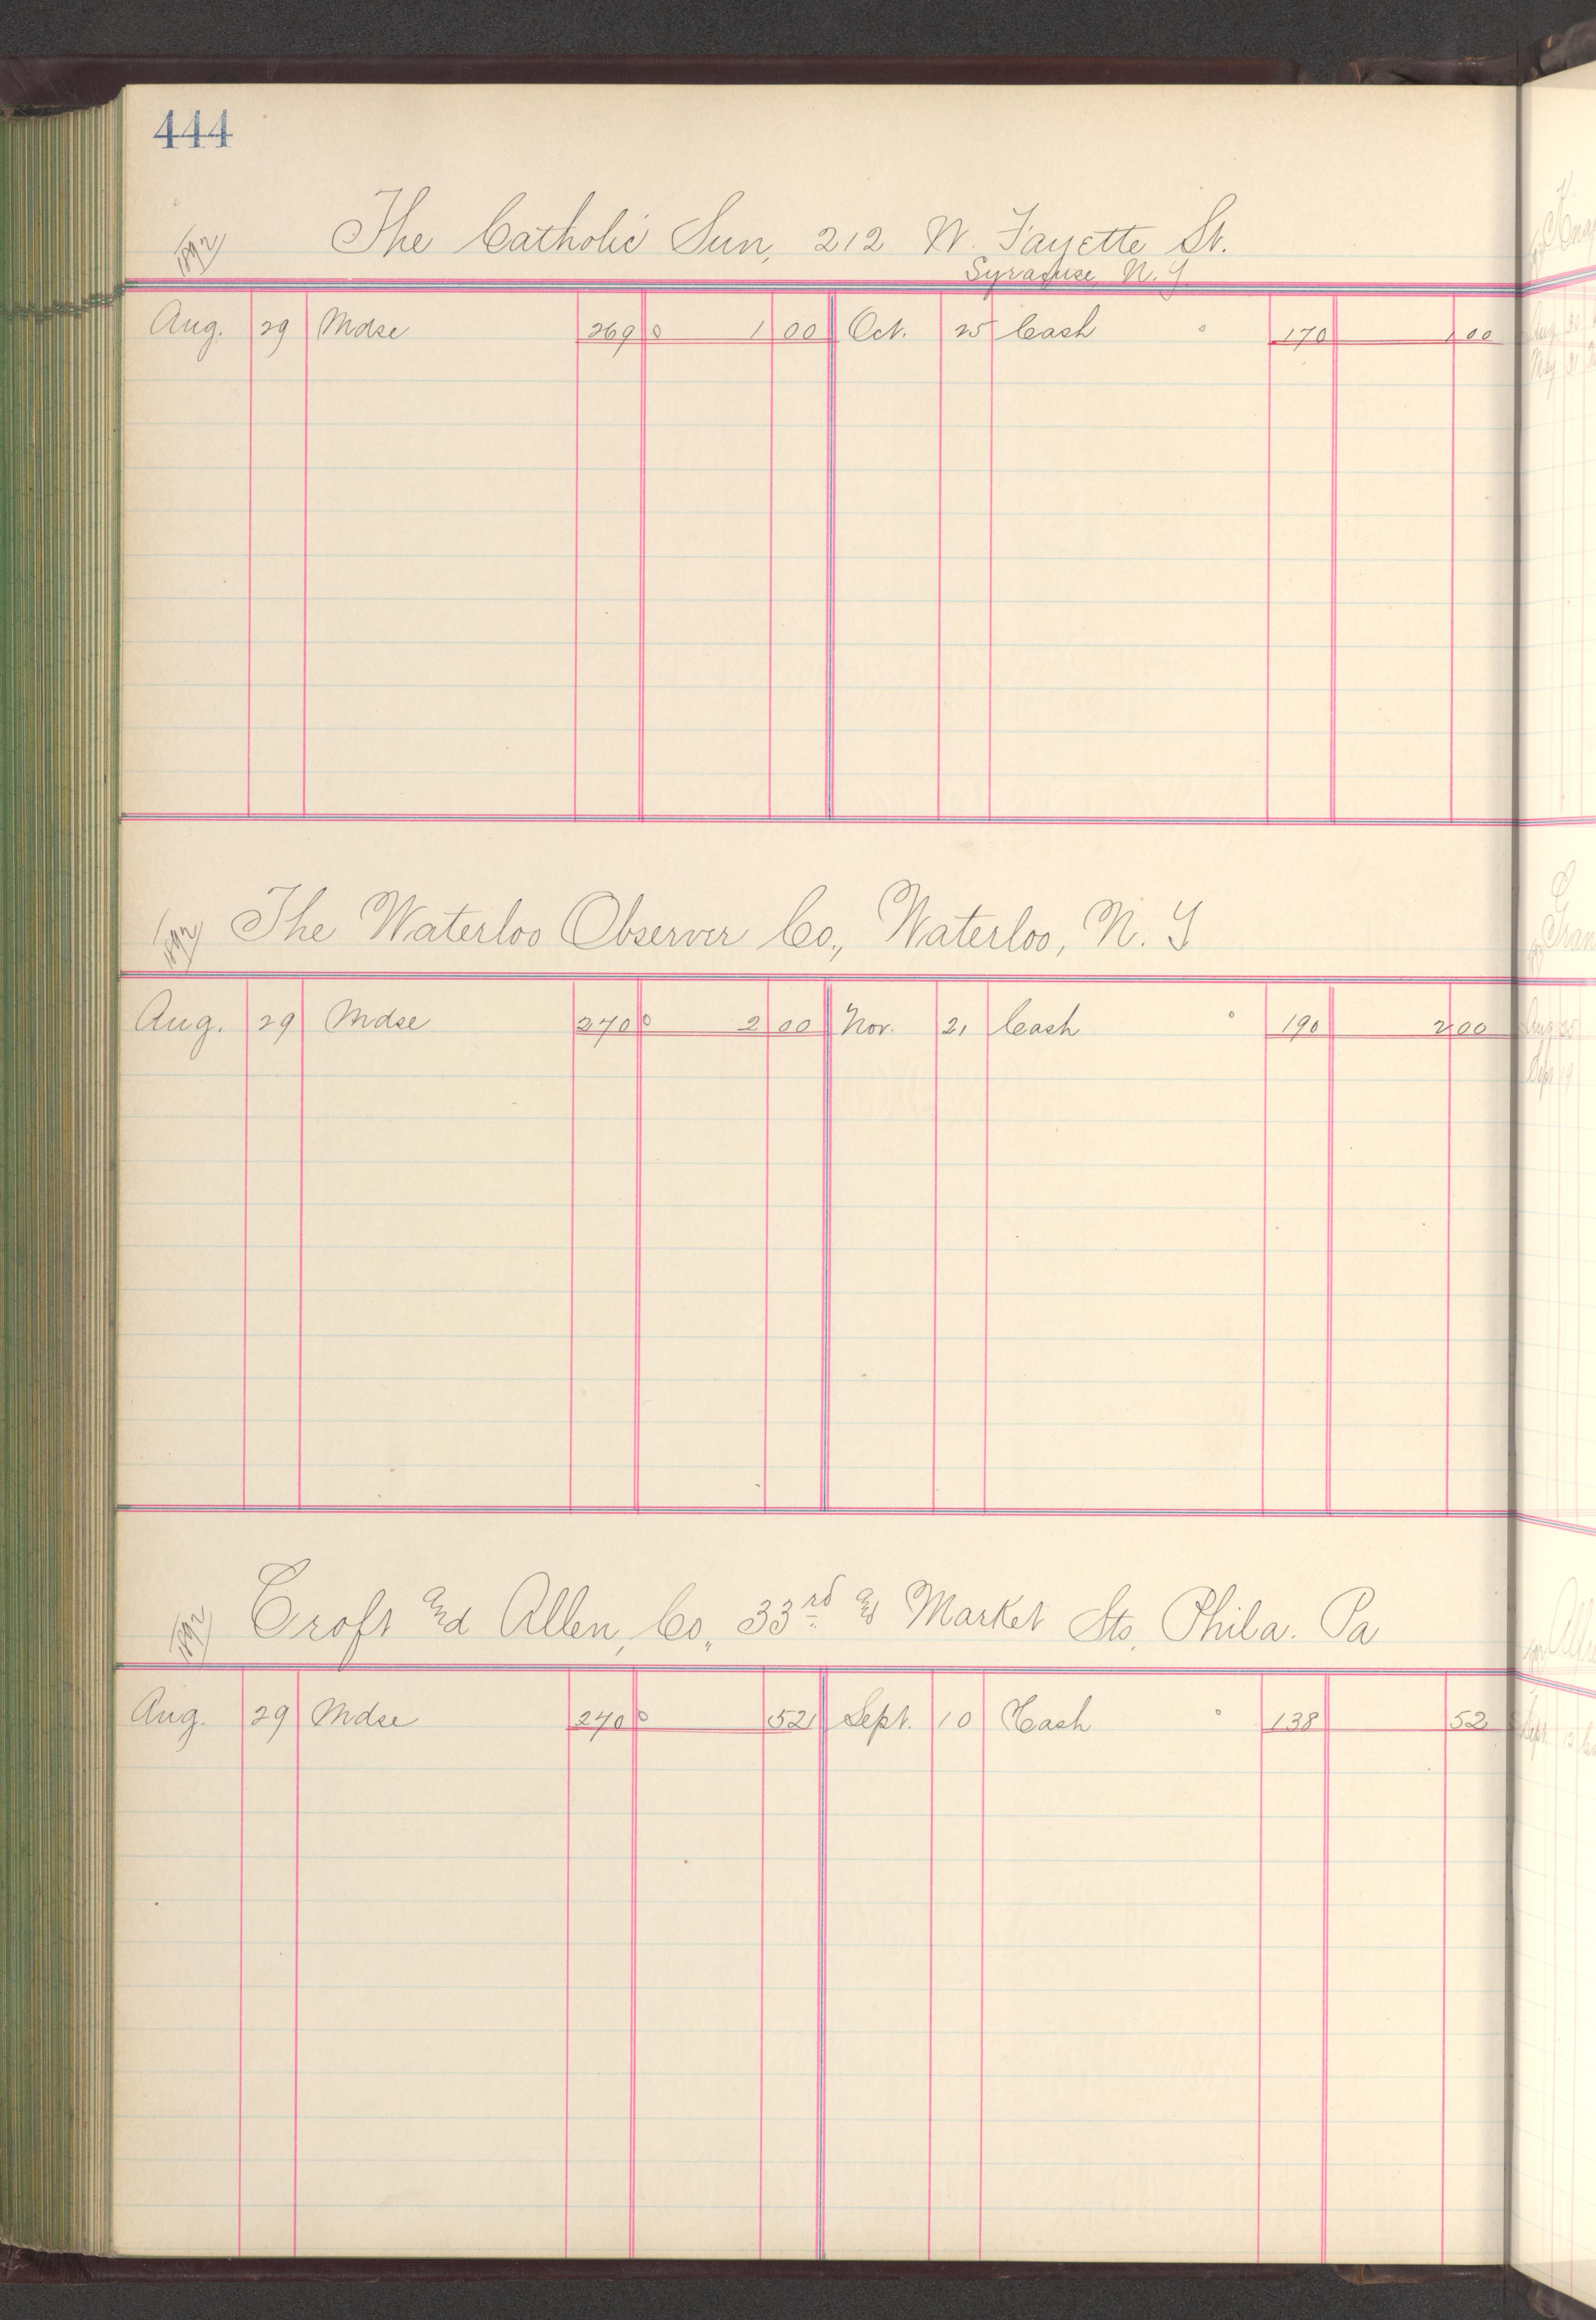 444
1892 The Catholic Sun, 212 W. Fayette St.
Syracuse, N.Y.
Aug. 29 Mdse 269 1 00 Oct. 25 Cash 170 1 00
1892 The Waterloo Observer Co., Waterloo, N. Y
Aug. 29 Mdse 270 2 00 Nov. 21 Cash 190 2 00
1892 Croft and Allen, Co., 33rd & Market Sts. Phila. Pa
Aug. 29 Mdse 270 52 Sept. 10 Cash 138 52